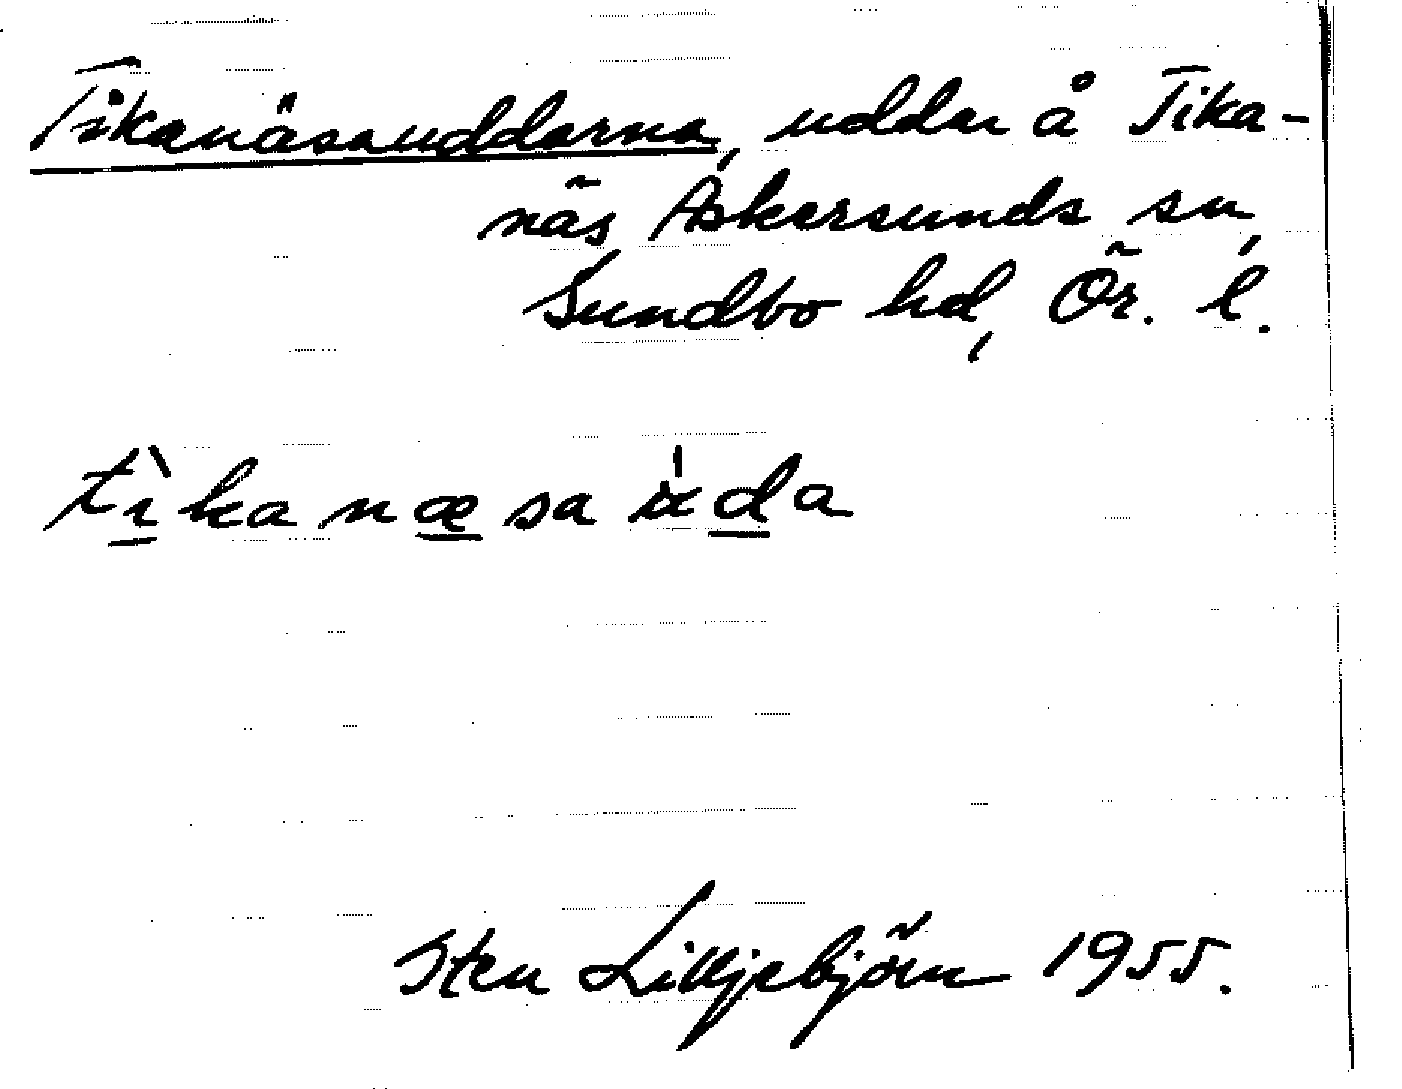 Tikanäsauddarna, uddar å Tika-
näs, Askersunds sn,
Sundbo hd, Ör. l.
tìkanæsaùda
Sten Lilljebjörn 1955.